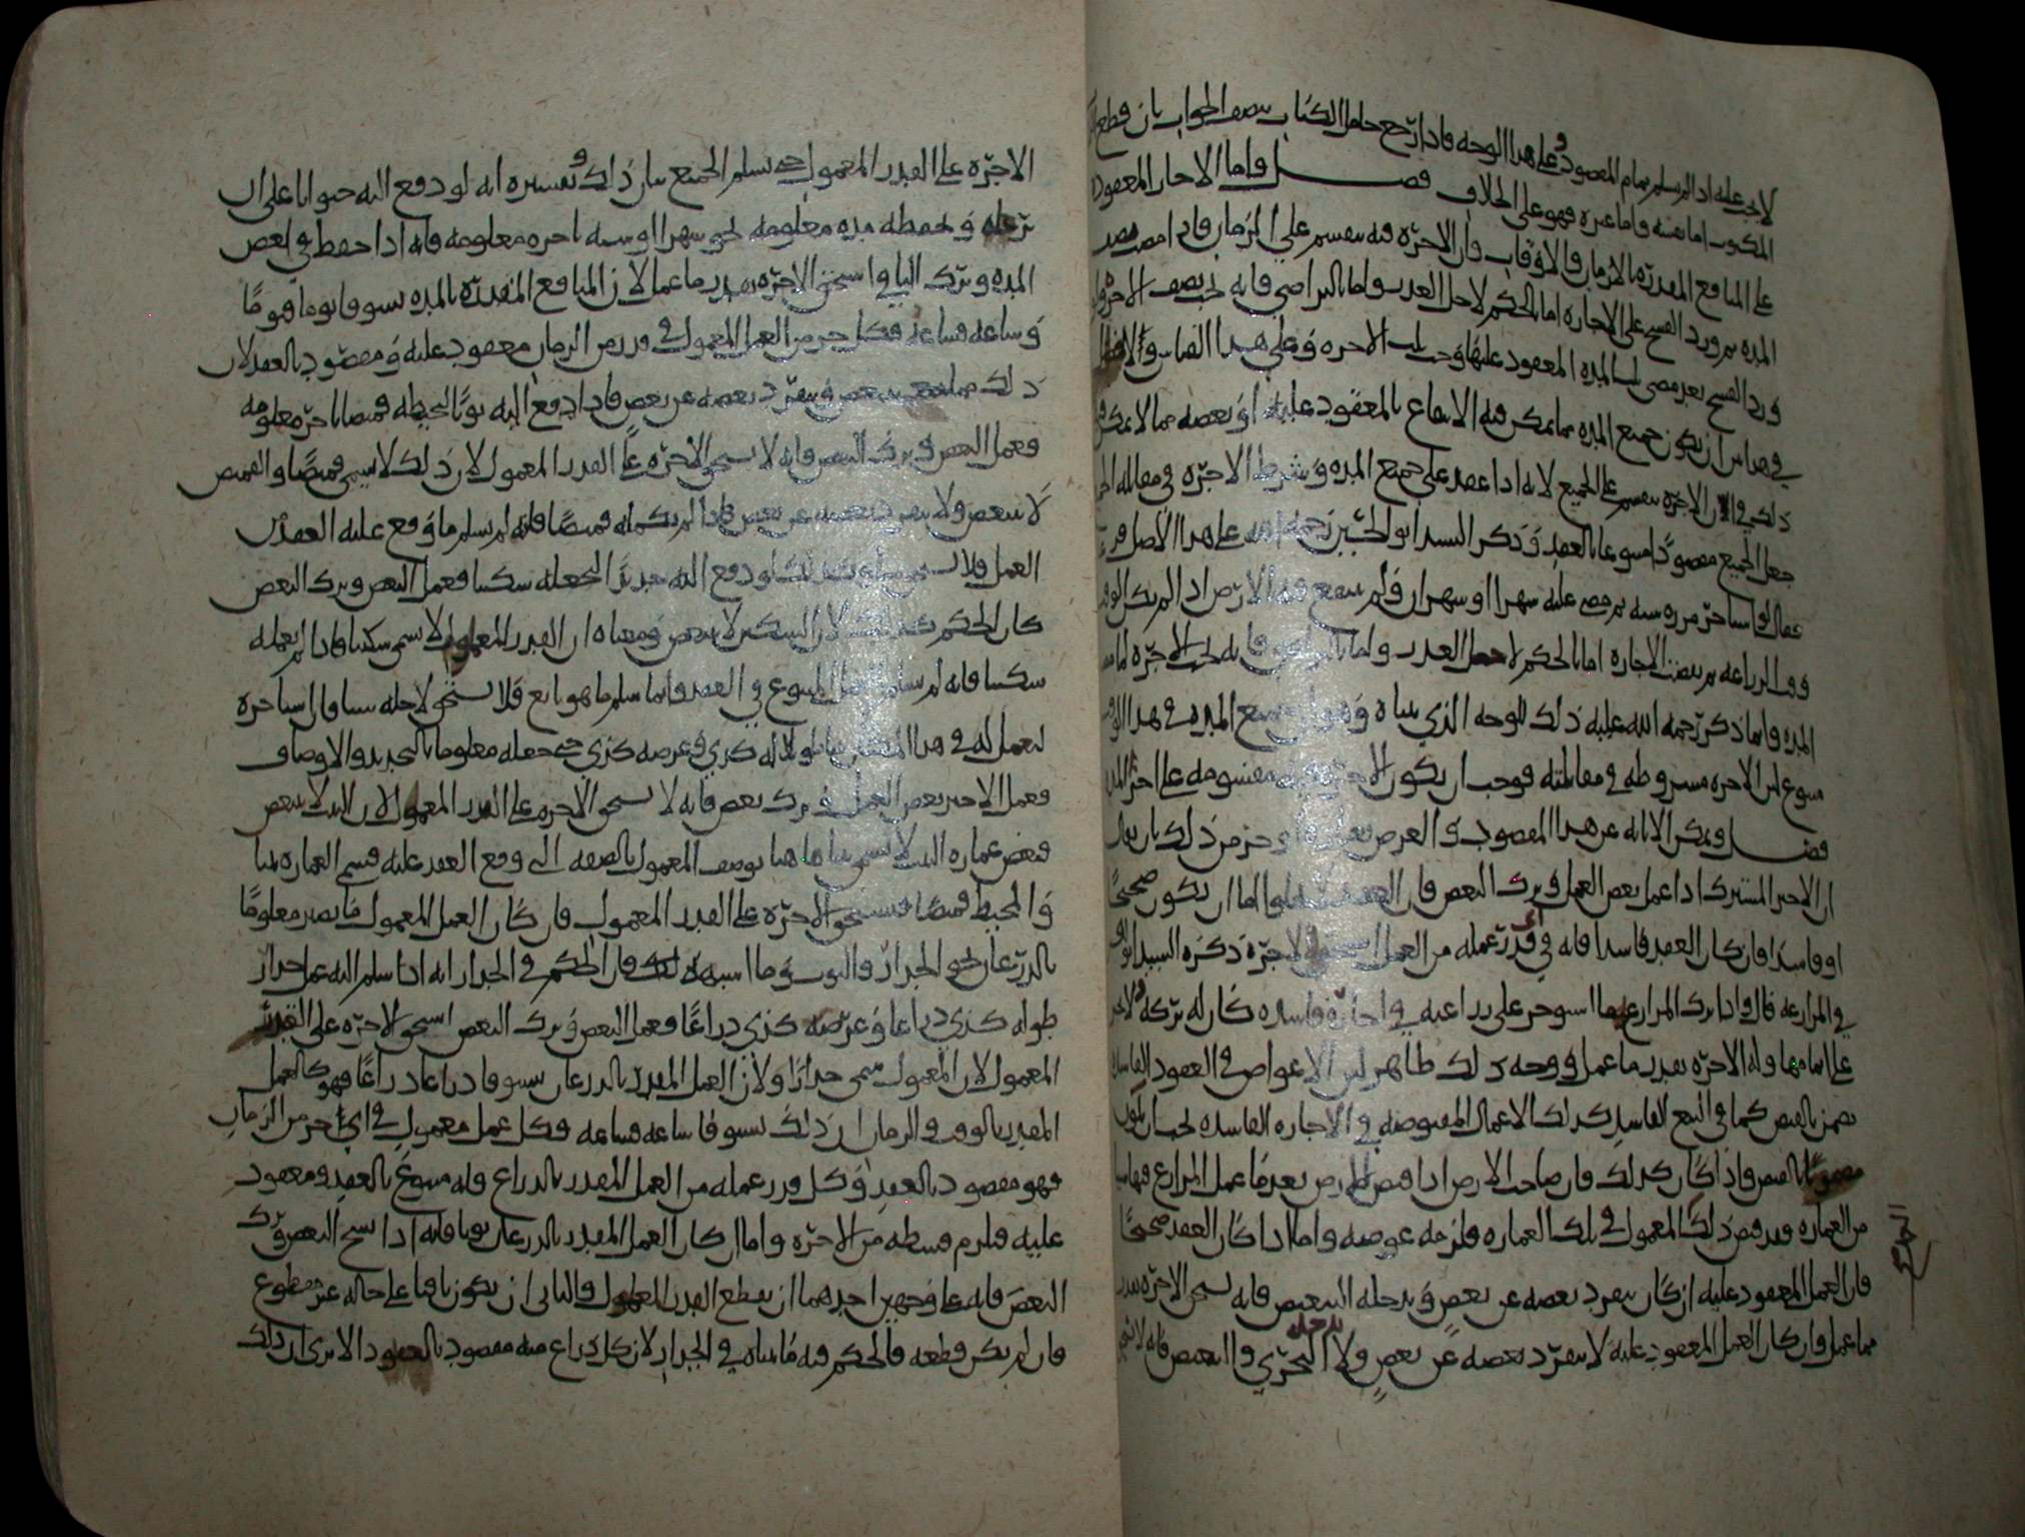 لا يجب عليه اذا لم يسلم تمام المقصود وعلى هذا الوجه فاذا رجع حامل الكتاب بنصف الجواب بان قطع
المكتوب اما نفسه واما غيره فهو على الخلاف فصل واما الاجار المعقود
على المنافع المقدرة بالازمان والاوقات فان الاجرة فيه تنقسم على الزمان فاذا مضى بعض
المدة ثم ورد الفسخ على الاجارة اما بالحكم لاجل العذر واما بالتراضي فانه يجب نصف الاجرة
ورد الفسخ بعد مضي ثلث المدة المعقود عليها وجب ثلث الاجرة وعلى هذا القياس
في هذا بين ان يكون جميع المدة مما يمكن فيه الانتفاع بالمعقود عليه او بعضه مما لا يمكن
ذلك في ان الاجرة تنقسم على الجميع لانه اذا عقد على جميع المدة وشرط الاجرة في مقابلة
جعل الجميع مقصودا متبوعا بالعقد وذكر السيد ابو الحسين رحمه الله على هذا الاصل
فقال لو استاجر من روسته ثم مضى عليه شهرا او شهران ولم ينتفع فيه الارض اذ لم يكن
وقت الزراعة ثم نقضت الاجارة اما بالحكم لاجل العذر واما بالتراضي فانه يجب الاجرة لما
المدة وانما ذكر رحمه الله عليه ذلك للوجه الذي بيناه وهو ان جميع المدة في هذا
متبوع لان الاجرة مشروطة في مقابلته فوجب ان يكون الاجرة مقسومة على اجزا
فصل ويمكن الابانة عن هذا المقصود والغرض من ذلك بان يقال
ان الاجير المشترك اذا عمل بعض العمل وترك البعض فان العقد لا يخلوا اما ان يكون صحيحا
او فاسدا فان كان العقد فاسدا فانه في اي قدر عمله من العمل استحق الاجرة ذكره السيد ابو
في المزارعة قال واذا ترك المزارع ما استوجر على زراعته في اجارة فاسدة كان له تركه
على اتمامها وله الاجرة بقدر ما عمل ووجه ذلك ظاهر لان الاعواض في العقود
تضمن بالقبض كما في البيع الفاسد كذلك الاعمال المقبوضة في الاجارة الفاسدة يجب ان يكون
مضمونا بالقبض واذا كان كذلك فان صاحب الارض اذا قبض الارض بعد ما عمل المزارع فيها
من العمارة وقد قبض ذلك المعمول في تلك العمارة فلزمه عوضه واما اذا كان العقد صحيحا
فان العمل المعقود عليه ان كان ينفرد بعضه عن بعض ويدخله التبعيض فانه يستحق الاجرة بقدر
ما عمل وان كان العمل المعقود عليه لا ينفرد بعضه عن بعض ولا يدخله التجزي والتبعيض فانه لا يستحق
الاجرة على القدر المعمول حتى يسلم الجميع بيان ذلك وتفسيره انه لو دفع اليه حيوانا على ان
يرعاه ويحفظه مدة معلومة نحو شهرا او سنة باجرة معلومة فانه اذا حفظ في بعض
المدة وترك الباقي استحق الاجرة بقدر ما عمل لان المنافع المقدرة بالمدة تستوفا يوما فيوما
وساعة فساعة فكل جزء من العمل المعمول في قدر من الزمان معقود عليه ومقصود بالعقد لان
ذلك مما يتبعض وينفرد بعضه عن بعض فاذا دفع اليه ثوبا ليخيطه قميصا باجرة معلومة
فعمل البعض وترك البعض فانه لا يستحق الاجرة على القدر المعمول لان ذلك لا يسمى قميصا والقميص
لا يتبعض ولا ينفرد بعضه عن بعض فاذا لم يكمله قميصا فانه لم يسلم ما وقع عليه العقد من
العمل فلا يستحق وكذلك لو دفع اليه حديدا ليجعله سكينا فعمل البعض وترك البعض
كان الحكم كذلك لان السكين لا يتبعض ومعناه ان القدر المعمول لا يسمى سكينا فاذا لم يعمله
سكينا فانه لم يسلم المتبوع في العقد وانما سلم ما هو تابع فلا يستحق لاجله شيئا وان استاجره
ليعمل له في هذا المكان بيتا طوله كذي وعرضه كذي حتى جعله معلوما بالتحديد والاوصاف
فعمل الاجير بعض العمل وترك بعض فانه لا يستحق الاجرة على القدر المعمول لان البيت لا يتبعض
وبعض عمارة البيت لا يسمى بيتا بوصف المعمول بالصفة التي وقع العقد عليه فيسمى العمارة بيتا
والمخيط قميصا فيستحق الاجرة على القدر المعمول فان كان العمل المعمول مما يصير معلوما
بالذرعان نحو الجدار والثوب وما اشبه ذلك فان الحكم في الجدار انه اذا سلم اليه عمل جدار
طوله كذي ذراعا وعرضه كذي ذراعا فعمل البعض وترك البعض استحق الاجرة على القدر
المعمول لان المعمول يسمى جدارا ولان العمل المقدر بالذرعان يستوفا ذراعا ذراعا فهو كالعمل
المقدر بالوقت والزمان ان ذلك يستوفا ساعة فساعة وكل عمل معمول في اي جزء من الزمان
فهو مقصود بالعقد وكل قدر عمله من العمل المقدر بالذراع فانه متبوع بالعقد ومعقود
عليه فيلزم قسطه من الاجرة واما ان كان العمل المقدر بالذرعان ثوبا فانه اذا نسج البعض وترك
البعض فانه على وجهين احدهما ان يقطع القدر المعمول والثاني ان يكون باقيا على حاله غير مقطوع
فان لم يكن قطعه فالحكم فيه ما بيناه في الجدار لان كل ذراع منه مقصود بالعقد الا ترى ان ذلك